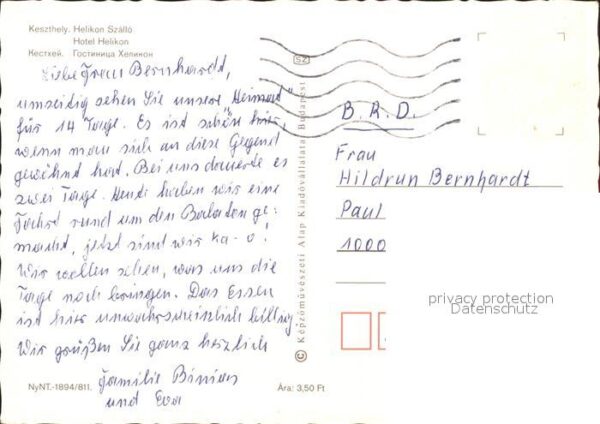 Keszthely. Helikon Szálló
Hotel Helikon
Кестхей. Гостиница Хеликон
Liebe Frau Bernhardt,
umseitig sehen Sie unsere "Heimat"
für 14 Tage. Es ist schön hier,
wenn man sich an diese Gegend
gewöhnt hat. Bei uns dauerte es
zwei Tage. Heute haben wir eine
Fahrt rund um den Balaton ge-
macht, jetzt sind wir ka-o!
Wir wollen sehen, was uns die
Tage noch bringen. Das Essen
ist hier unwahrscheinlich billig
Wir grüßen Sie ganz herzlich
Familie
und Eva
NyNT.-1894/811.
Ára: 3,50 Ft
SZ
© Képzőművészeti Alap Kiadóvállalata, Budapest
B.R.D.
Frau
Hildrun Bernhardt
Paul
1000
privacy protection
Datenschutz